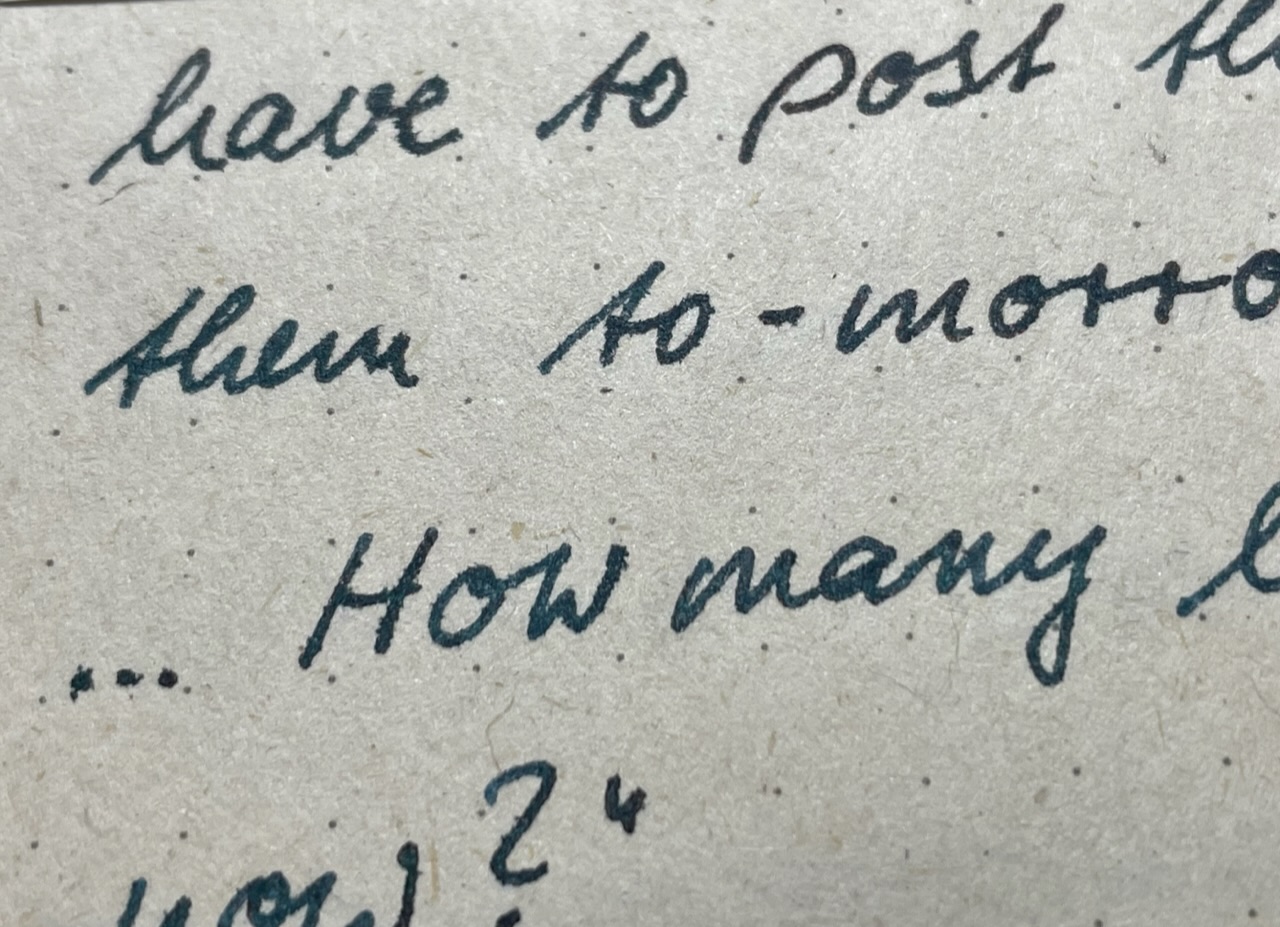 have to post
them to-morro
... How many
now?"